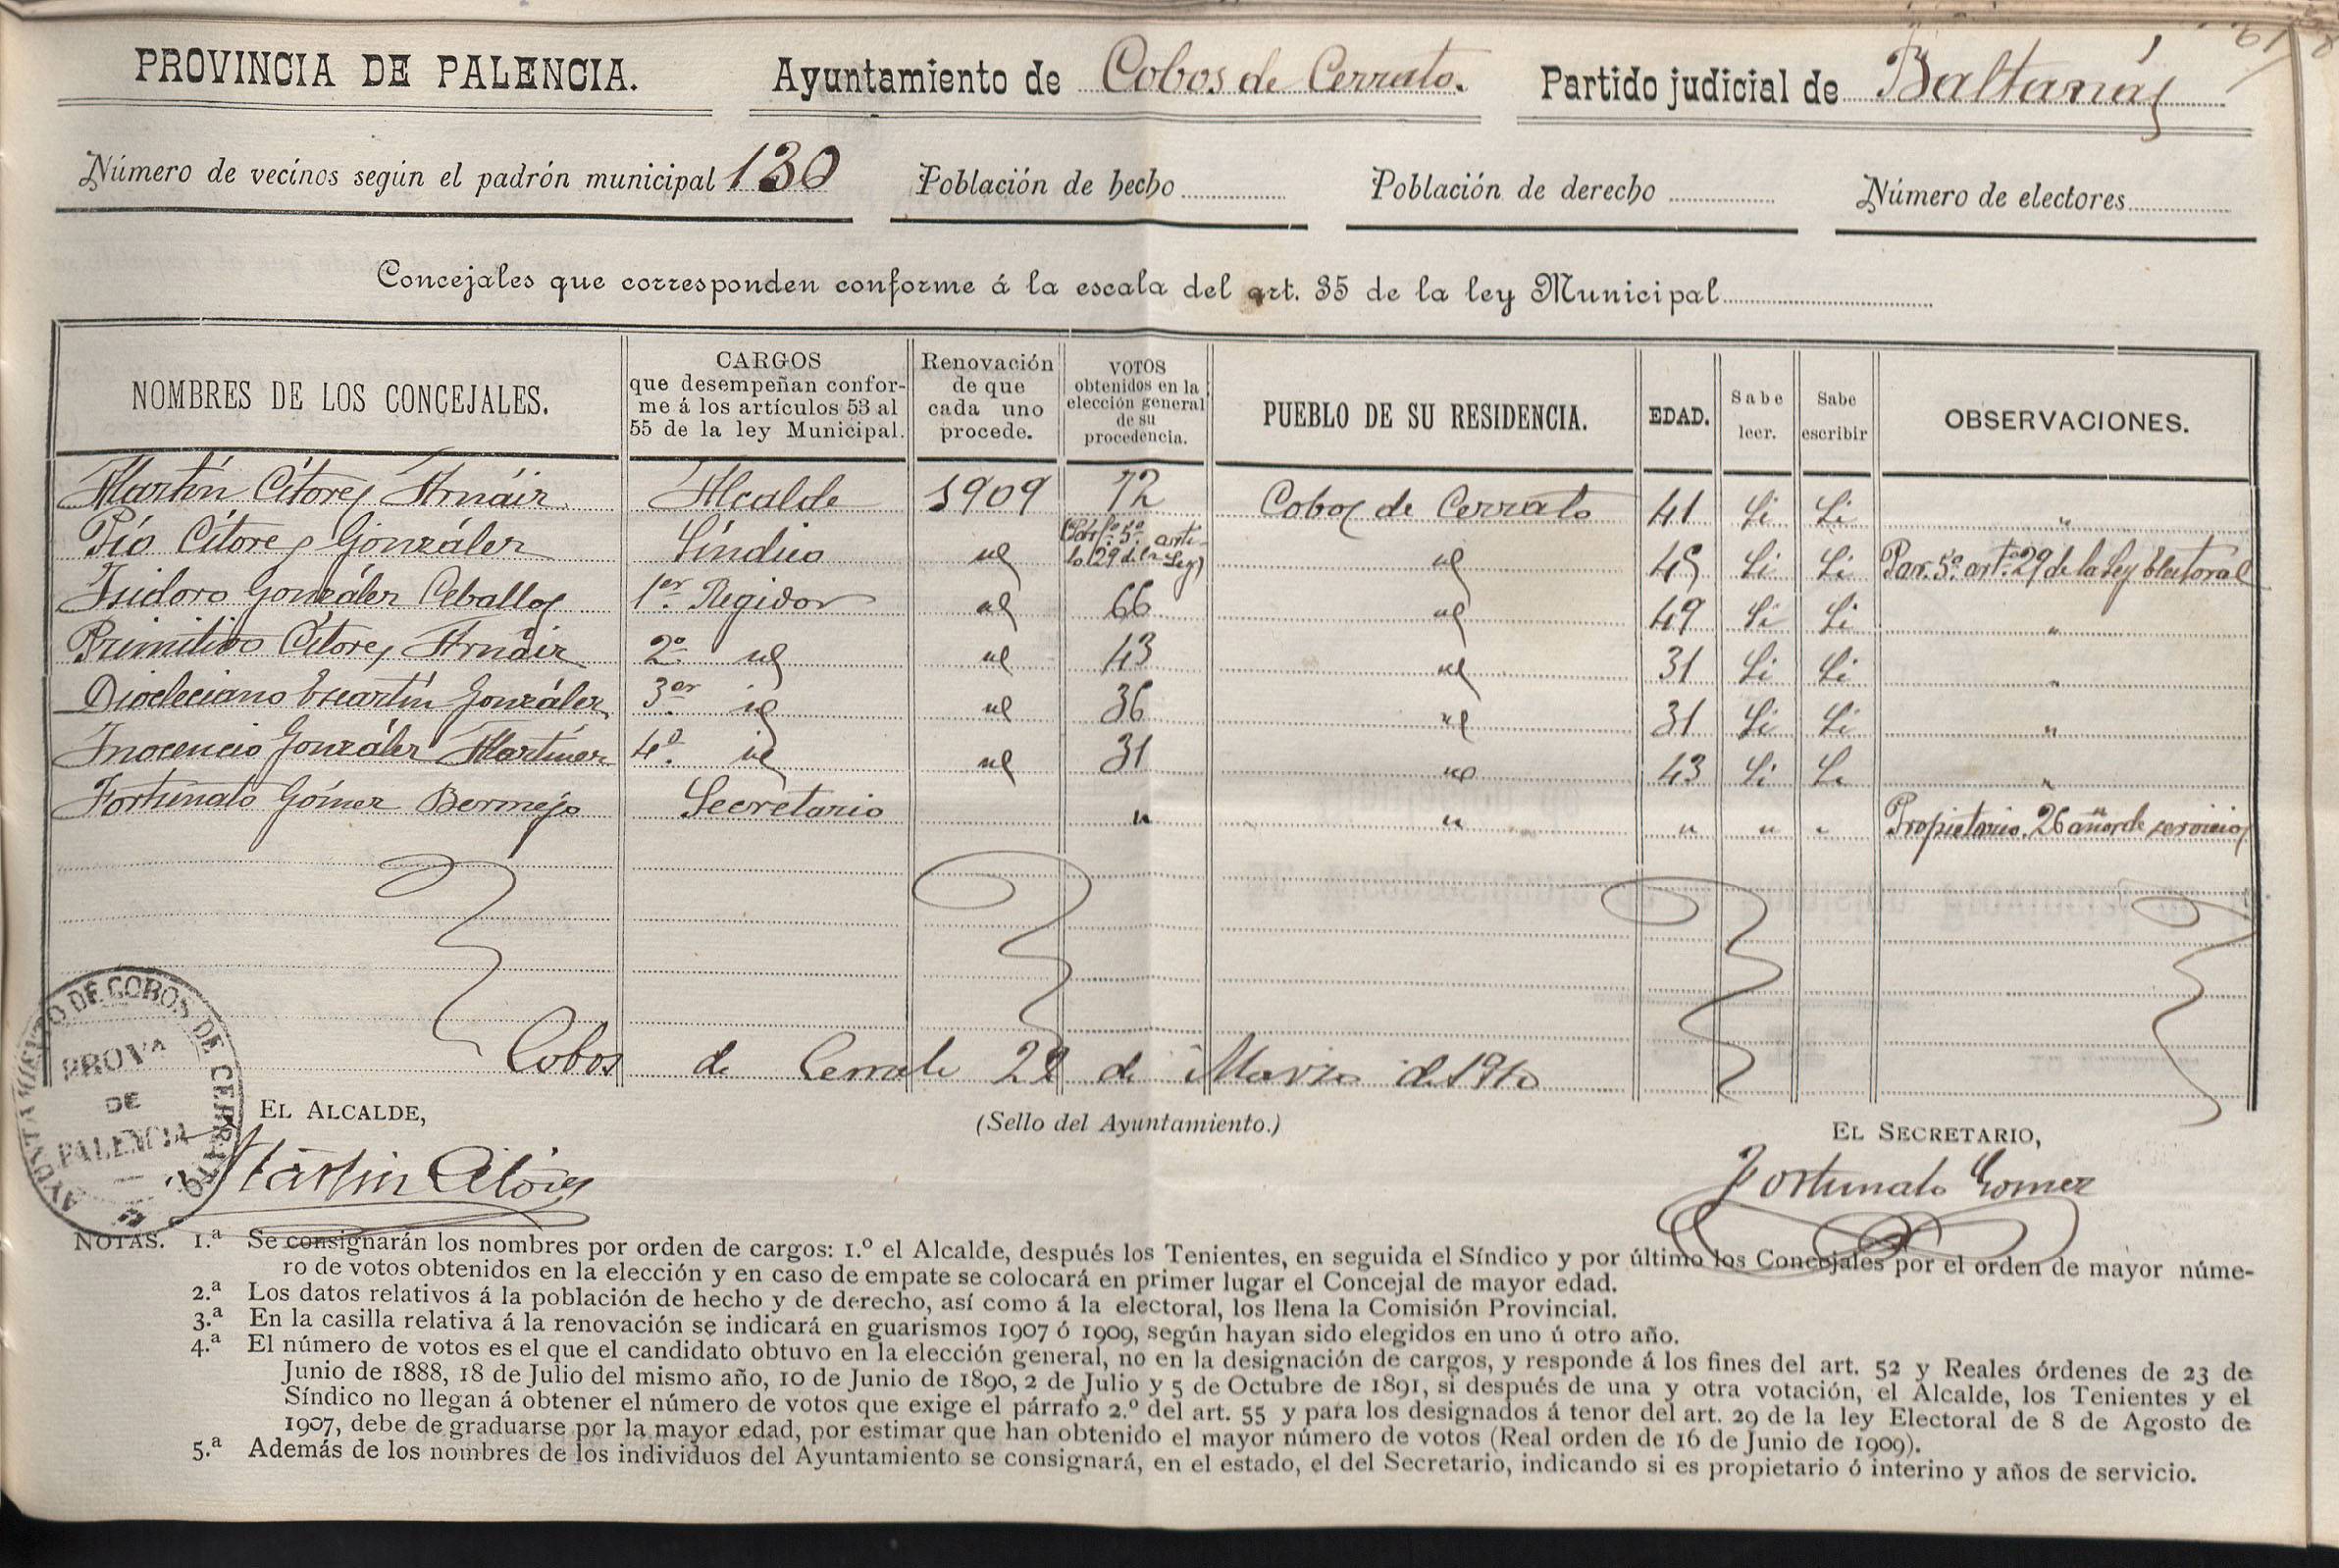 PROVINCIA DE PALENCIA. Ayuntamiento de Cobos de Cerrato. Partido judicial de Baltanás
Número de vecinos según el padrón municipal 130 Población de hecho Población de derecho Número de electores
Concejales que corresponden conforme á la escala del art. 35 de la ley Municipal
NOMBRES DE LOS CONCEJALES.
CARGOS
que desempeñan confor-
me á los artículos 53 al
55 de la ley Municipal.
Renovación
de que
cada uno
procede.
VOTOS
obtenidos en la
elección general
de su
procedencia.
PUEBLO DE SU RESIDENCIA.
EDAD.
Sabe
leer.
Sabe
escribir
OBSERVACIONES.
Martín Citores Arnáiz Alcalde 1909 72 Cobos de Cerrato 41 Si Si "
Pío Citores González Síndico id 45 Si Si Par. 5º. artº 29 de la Ley Electoral
Isidoro González Ceballos 1er. Regidor id 66 id 49 Si Si "
Primitivo Citores Arnáiz 2º. id id 43 id 31 Si Si "
Diocleciano Escartín González 3er. id id 36 id 31 Si Si "
Inocencio González Martínez 4º. id id 31 id 43 Si Si "
Fortunato Gómez Bermejo Secretario " " " " " Propietario. 26 años de servicios
Cobos de Cerrato 22 de Marzo de 1910
AYUNTAMIENTO DE COBOS DE CERRATO
PROVA
DE
PALENCIA
EL ALCALDE,
(Sello del Ayuntamiento.)
EL SECRETARIO,
Martin Citores
Fortunato Gomez
NOTAS. 1.ª Se consignarán los nombres por orden de cargos: 1.º el Alcalde, después los Tenientes, en seguida el Síndico y por último los Concejales por el orden de mayor núme-
ro de votos obtenidos en la elección y en caso de empate se colocará en primer lugar el Concejal de mayor edad.
2.ª Los datos relativos á la población de hecho y de derecho, así como á la electoral, los llena la Comisión Provincial.
3.ª En la casilla relativa á la renovación se indicará en guarismos 1907 ó 1909, según hayan sido elegidos en uno ú otro año.
4.ª El número de votos es el que el candidato obtuvo en la elección general, no en la designación de cargos, y responde á los fines del art. 52 y Reales órdenes de 23 de
Junio de 1888, 18 de Julio del mismo año, 10 de Junio de 1890, 2 de Julio y 5 de Octubre de 1891, si después de una y otra votación, el Alcalde, los Tenientes y el
Síndico no llegan á obtener el número de votos que exige el párrafo 2.º del art. 55 y para los designados á tenor del art. 29 de la ley Electoral de 8 de Agosto de
1907, debe de graduarse por la mayor edad, por estimar que han obtenido el mayor número de votos (Real orden de 16 de Junio de 1909).
5.ª Además de los nombres de los individuos del Ayuntamiento se consignará, en el estado, el del Secretario, indicando si es propietario ó interino y años de servicio.